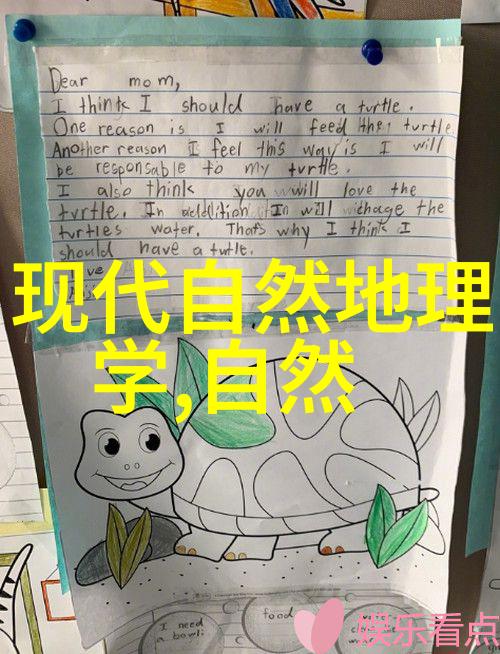 Dear mom,
I think I should have a turtle.
One reason is I will feed the turtle.
Another reason I feel this way is I will
be responsable to my turtle.
I also think you will love the
turtle. In addition I will chage the
turtles water. Thats why I think I
should have a turtle.
现代自然地理
学,自然
I need
a bowl
food
娱乐看点